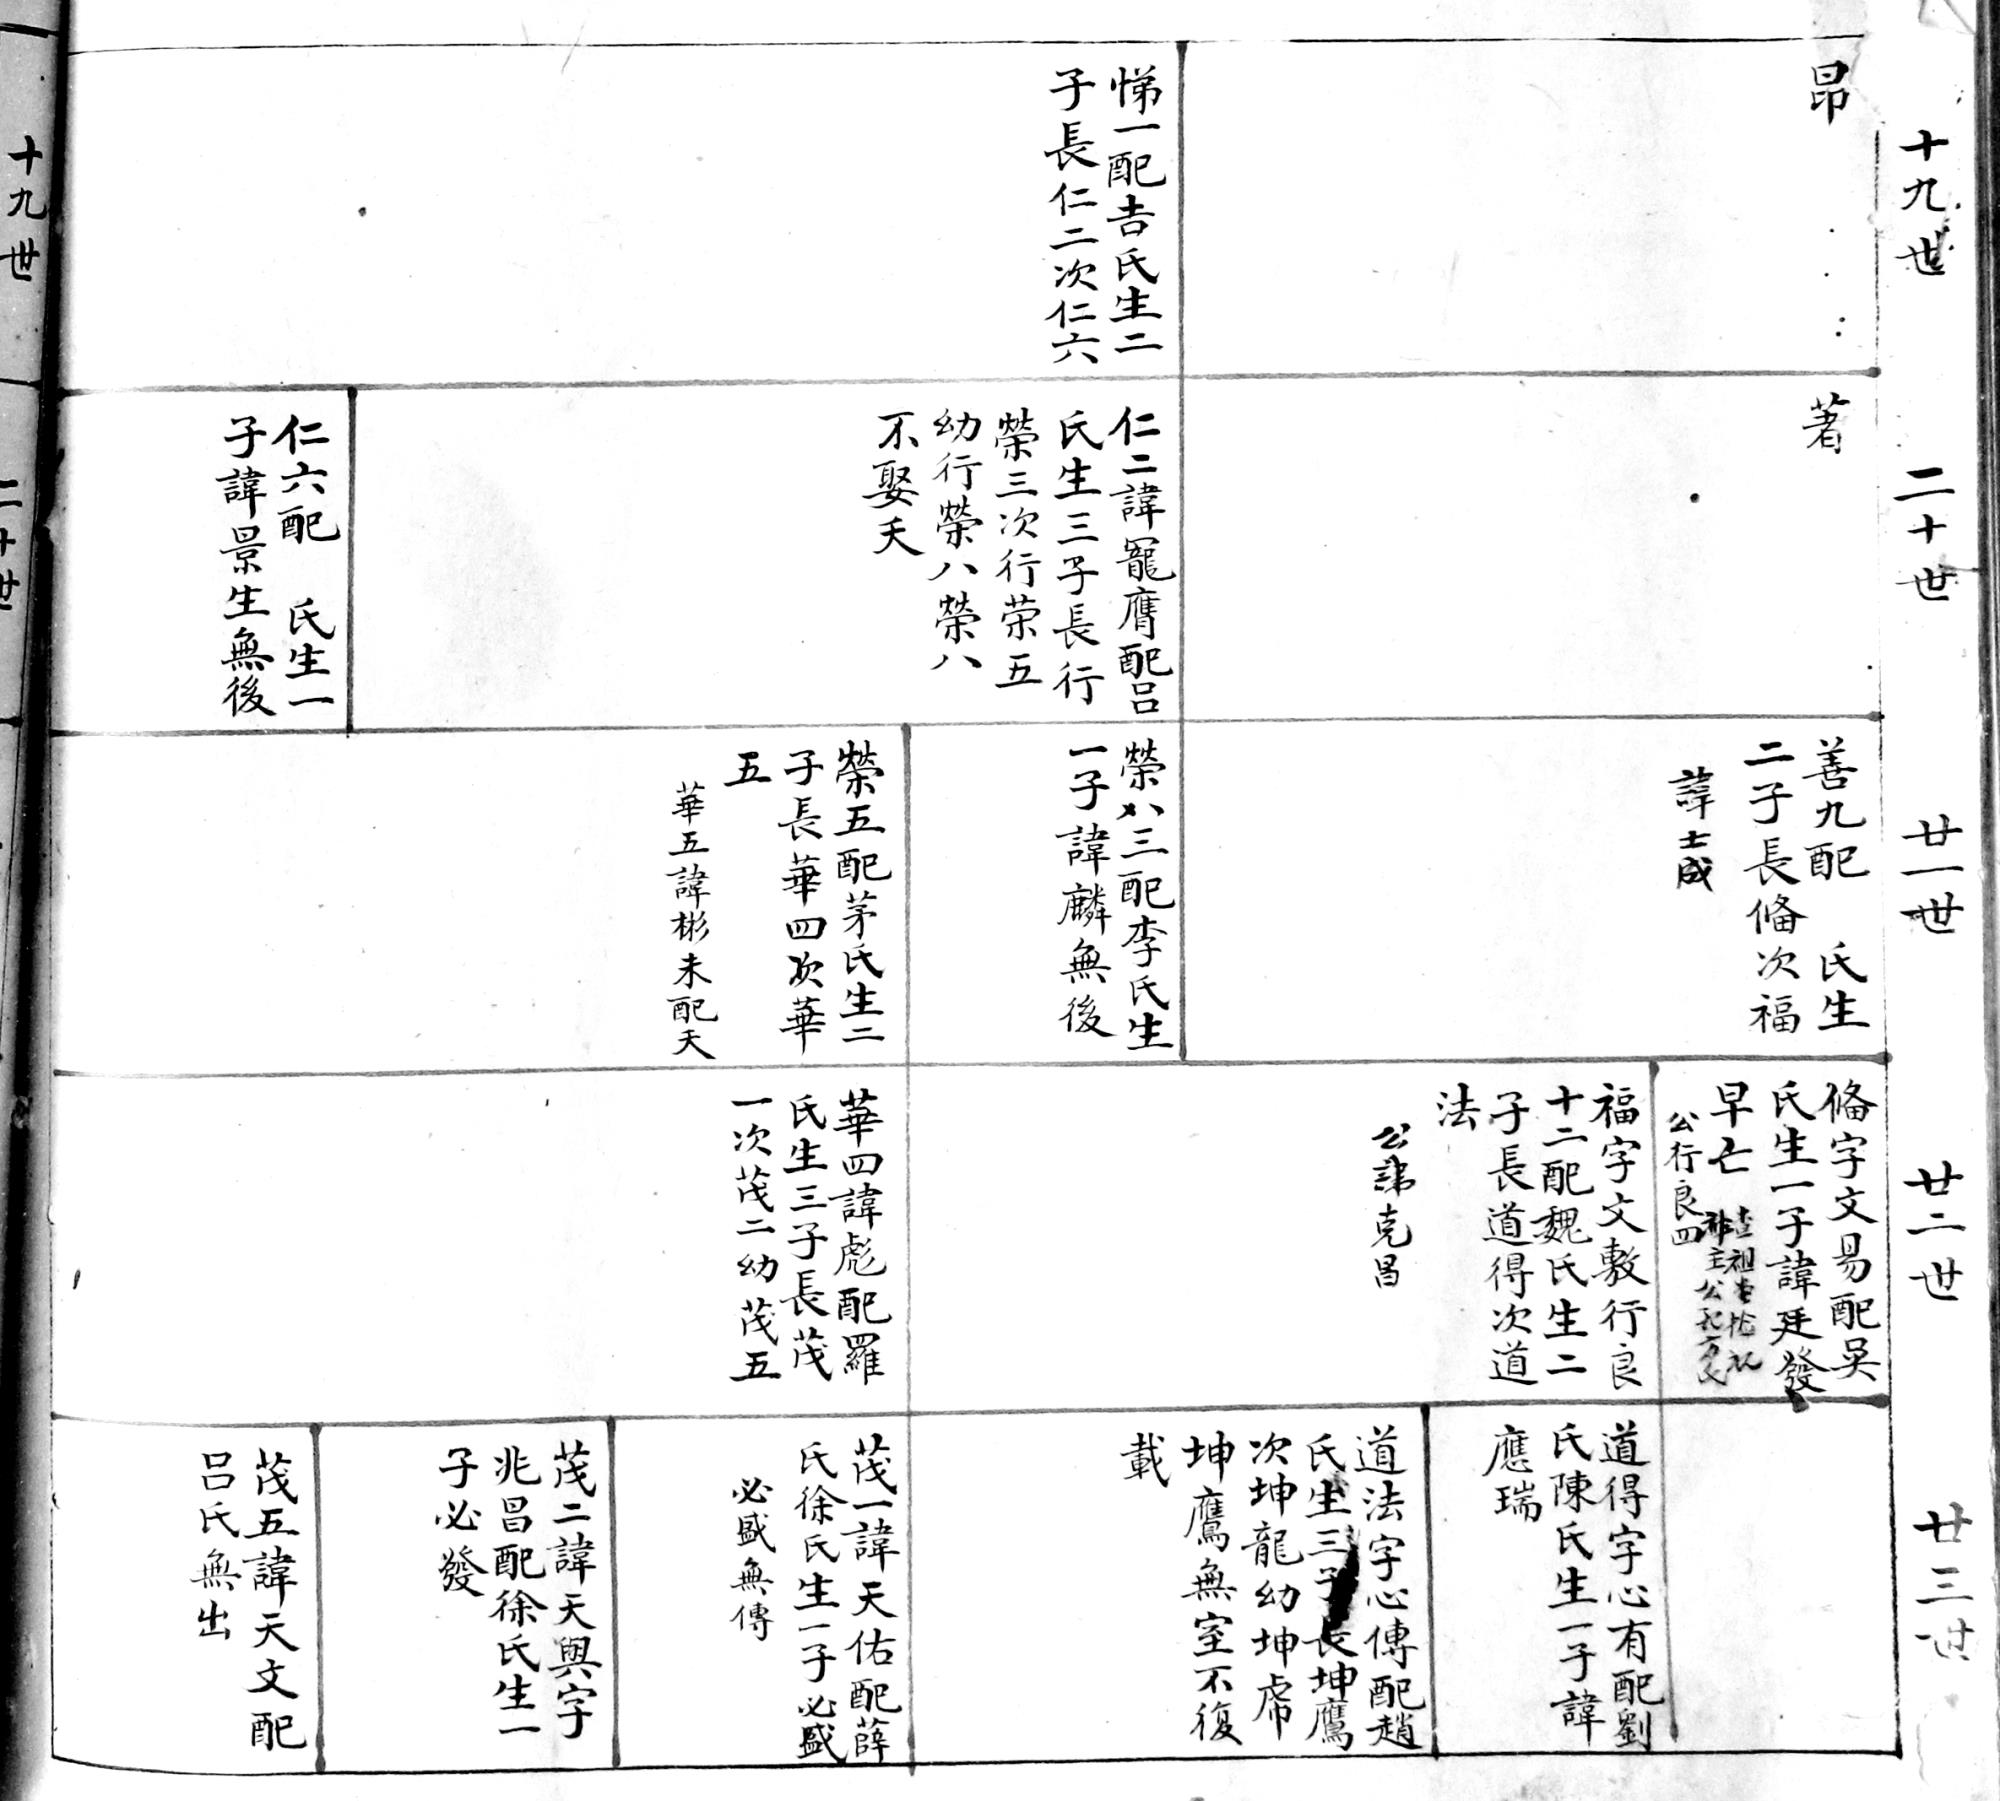 十九世
昂
悌一配吉氏生二
子長仁二次仁六
二十世
著
仁二諱寵膺配呂
氏生三子長行
榮三次行荣五
幼行榮八榮八
不娶夭
仁六配 氏生一
子諱景生無後
廿一世
善九配 氏生
二子長脩次福
諱士成
榮三配李氏生
一子諱麟無後
榮五配茅氏生二
子長華四次華
五
華五諱彬未配夭
廿二世
脩字文易配吳
氏生一子諱廷發
早亡
神主公
公行良四
福字文敷行良
十二配魏氏生二
子長道得次道
法
公諱克昌
華四諱彪配羅
氏生三子長茂
一次茂二幼茂五
廿三世
道得字心有配劉
氏陳氏生一子諱
應瑞
道法字心傳配趙
氏生三子長坤鷹
次坤龍幼坤席
坤鷹無室不復
載
茂一諱天佑配薛
氏徐氏生一子必盛
必盛無傳
茂二諱天與字
兆昌配徐氏生一
子必發
茂五諱天文配
呂氏無出
十九世
二十世